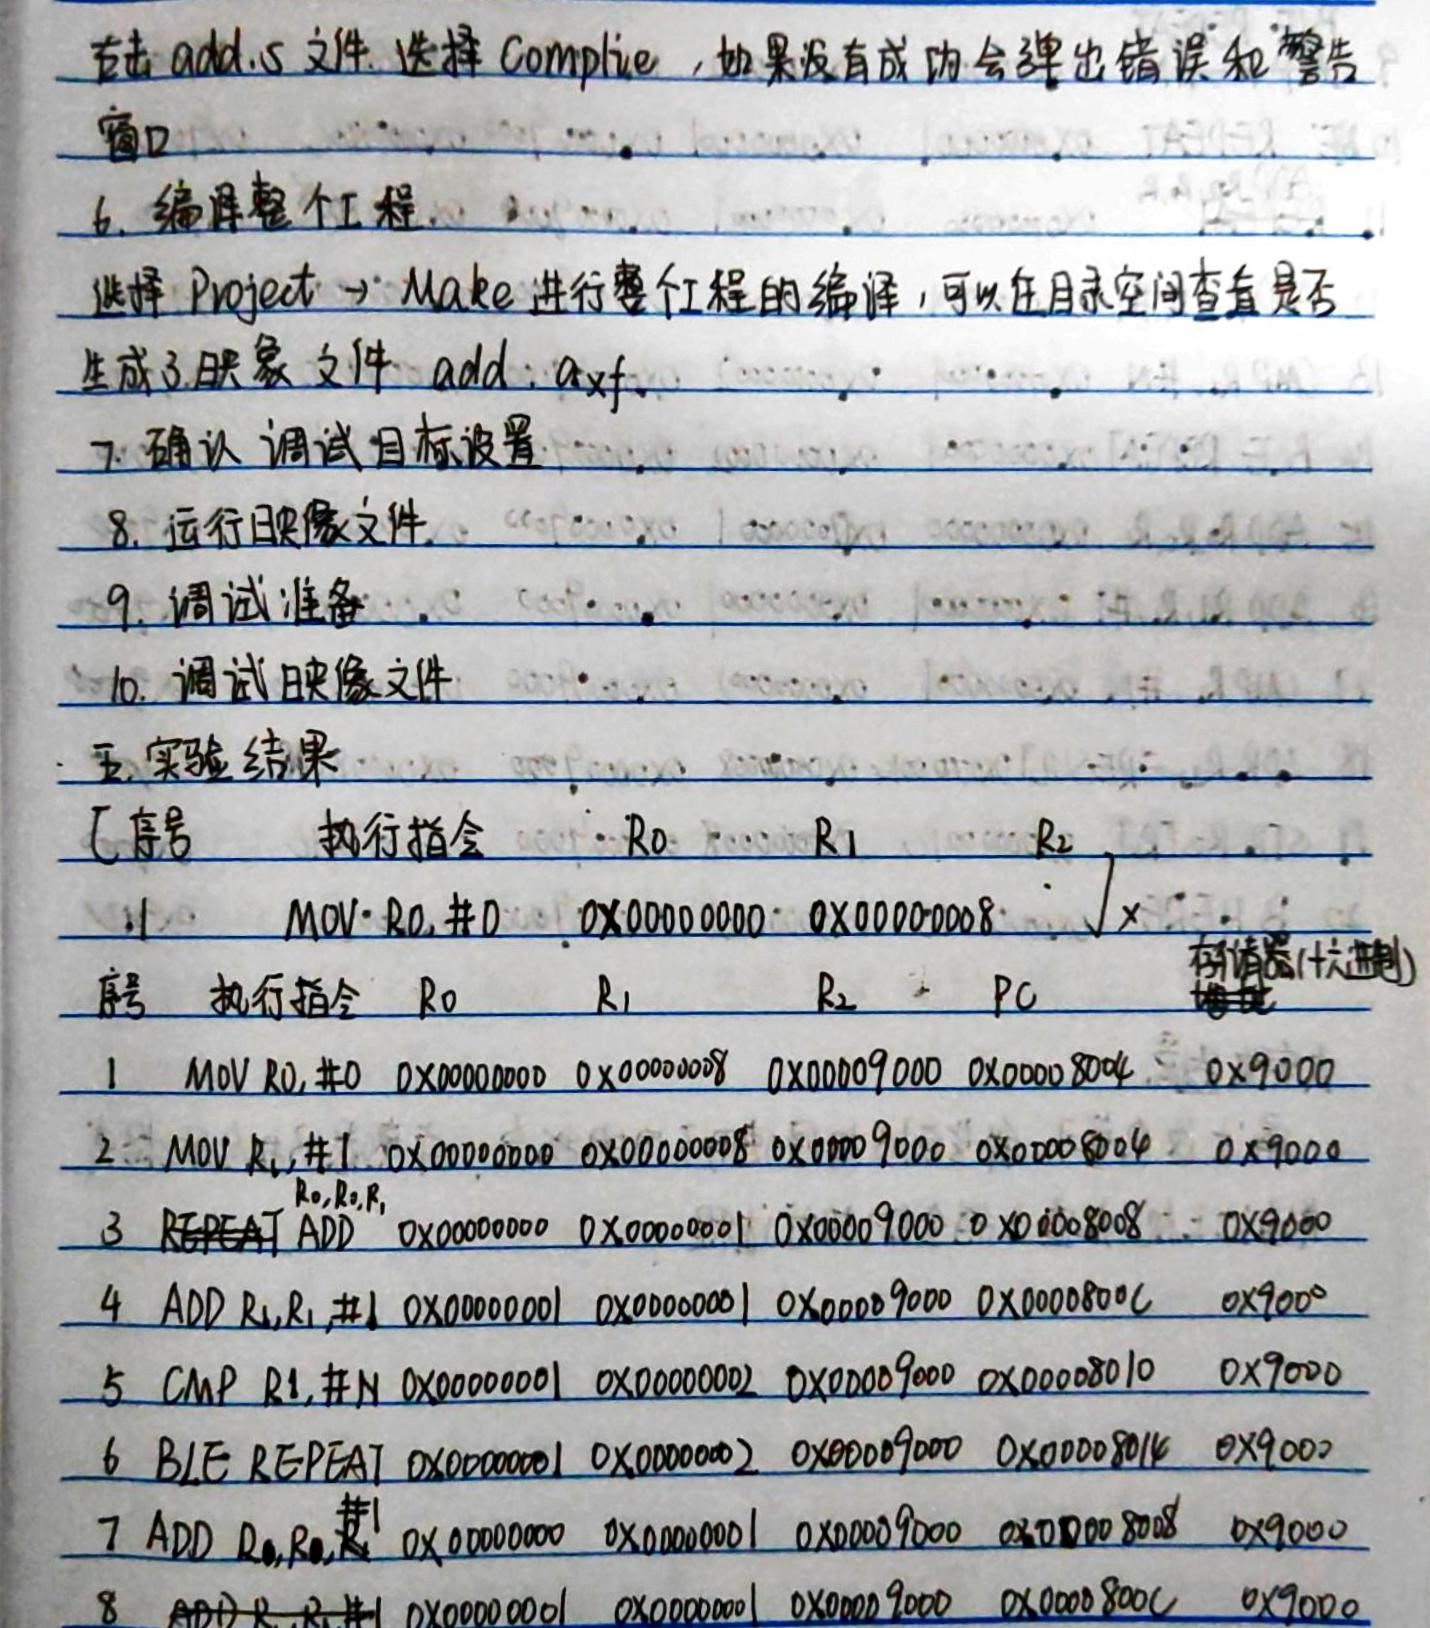 右击 add.s 文件. 选择 Complie , 如果没有成功会弹出错误和警告
窗口
6. 编译整个工程.
选择 Project → Make 进行整个工程的编译, 可以在目录空间查看是否
生成了映象文件 add.axf.
7. 确认调试目标设置
8. 运行映像文件.
9. 调试准备
10. 调试映像文件
五. 实验结果
[序号 执行指令 R0 R1 R2
1 MOV R0, #0 0X00000000 0X00000008 ] x
序号 执行指令 R0 R1 R2 PC 存储器(十六进制)
1 MOV R0, #0 0X00000000 0X00000008 0X00009000 0X00008004 0X9000
2 MOV R1, #1 0X00000000 0X00000008 0X00009000 0X00008004 0X9000
3 ADD R0, R0, R1 0X00000000 0X00000001 0X00009000 0X00008008 0X9000
4 ADD R1, R1, #1 0X00000001 0X00000001 0X00009000 0X0000800C 0X9000
5 CMP R1, #N 0X00000001 0X00000002 0X00009000 0X00008010 0X9000
6 BLE REPEAT 0X00000001 0X00000002 0X00009000 0X00008014 0X9000
7 ADD R0, R0, #1 0X00000000 0X00000001 0X00009000 0X00008008 0X9000
8 ADD R1, R1, #1 0X00000001 0X00000001 0X00009000 0X0000800C 0X9000